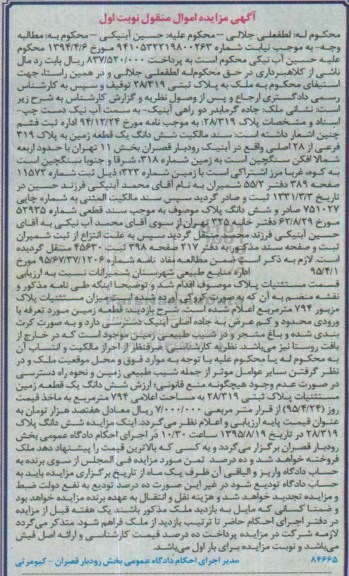 آگهی مزایده اموال منقول نوبت اول
محکوم له: لطفعلی جلالی - محکوم علیه: حسین آبنیکی - محکوم به: مطالبه
وجه- به موجب نیابت شماره ۹۴۱۰۵۳۲۲۱۹۸۰۰۲۶۳ مورخ ۱۳۹۴/۴/۶ محکوم
علیه حسین آب نیکی محکوم است به پرداخت ۸۳۷/۵۲۰/۰۰۰ ریال بابت رد مال
ناشی از کلاهبرداری در حق محکوم‌له لطفعلی جلالی و در همین راستا، جهت
استیفای محکوم به ملک به پلاک ثبتی ۲۸/۳۱۹ توقیف و سپس به کارشناس
رسمی دادگستری ارجاع و پس از وصول نظریه و گزارش کارشناس به شرح زیر
است: نشانی ملک جاده گرمابدر دو راهی آبنیک- به سمت آب نیک دست چپ-
اسناد و مشخصات پلاک ۲۸/۳۱۹: به موجب نامه مورخ ۹۴/۱۲/۲۴ اداره ثبت فشم
چنین اشعار داشته است: سند مالکیت شش دانگ یک قطعه زمین به پلاک ۳۱۹
فرعی از ۲۸ اصلی واقع در آبنیک رودبار قصران بخش ۱۱ تهران با حدود اربعه
شمالا افکن سنگچین است به زمین شماره ۳۱۸؛ شرقا و جنوبا سنگچین است
به کوه، غربا مرز اشتراکی است با زمین شماره ۳۲۳؛ ذیل ثبت شماره ۱۱۵۷۲
صفحه ۳۸۹ دفتر ۵۵/۲ شمیران به نام آقای محمد آبنیکی فرزند حسین در
تاریخ ۱۳۳۱/۳/۳ ثبت و صادر گردید سپس سند مالکیت المثنی به شماره چاپی
۷۵۱۰۲۷ صادر و شش دانگ پلاک موصوف به موجب سند قطعی شماره ۵۲۹۳۵
مورخ ۶۲/۸/۲۹ دفتر خانه ۳۲۵ تهران از سوی آقای محمد آب نیکی به آقای
حسین آبنیکی فرزند محمد منتقل گردید سپس به علت انتزاع از ثبت شمیران
ثبت و صفحه سند مذکور به دفتر ۲۱۷ صفحه ۳۹۸ ثبت ۴۵۶۳۰ منتقل گردیده
است. لازم به ذکر است ضمن مطالعه مفاد نامه شماره ۹۵/۶۷/۳۷/۱۲۰۶ مورخ
۹۵/۴/۱ اداره منابع طبیعی شهرستان شمیرانات نسبت به ارزیابی
قسمت مستثنیات پلاک موصوف اقدام شد و توضیحا اینکه طی نامه مذکور و
نقشه منضم به آن که به صورت کروکی آورده شده است میزان مستثنیات پلاک
مزبور ۷۹۴ مترمربع اعلام شده است. شرح بازدید: قطعه زمین مورد تعرفه با
ورودی محدود و کم عرض به جاده اصلی آبنیک دسترسی دارد و به صورت کرت
بندی شده و باغ مشجر و در شیب طبیعی زمین موجود است که در خارج از
بافت روستا نیز می‌باشد. نظریه کارشناسی: صرفنظر از احراز مالکیت و انتساب آن
به محکوم له یا محکوم علیه با توجه به موارد فوق و محل موقعیت ملک و در
نظر گرفتن سایر عوامل موثر از جمله شیب طبیعی زمین و نحوه راه دسترسی
در صورت عدم وجود هیچگونه منع قانونی؛ ارزش شش دانگ یک قطعه زمین
مستثنیات پلاک ثبتی ۲۸/۳۱۹ به مساحت اعلامی ۷۹۴ مترمربع به ماخذ قیمت
روز (۹۵/۴/۲۴) از قرار متر مربعی ۷/۰۰۰/۰۰۰ ریال معادل هفتصد هزار تومان به
عنوان قیمت پایه ارزیابی و اعلام نظر می‌گردد. اینک مزایده شش دانگ پلاک
۲۸/۳۱۹ در تاریخ ۱۳۹۵/۸/۱۹ ساعت ۱۰/۳۰ در اجرای احکام دادگاه عمومی بخش
رودبار قصران برگزار می‌گردد و به کسی که بالاترین قیمت را پیشنهاد دهد ملک
فروخته خواهد شد و ده درصد ثمن مورد مزایده فی المجلس از سوی برنده به
حساب دادگاه واریز و الباقی آن ظرف یک ماه از تاریخ برگزاری مزایده باید به
حساب دادگاه تودیع شود در غیر این صورت ده درصد تودیع به نفع دولت ضبط
و مزایده تجدید خواهد شد و هزینه نقل و انتقال به عهده برنده مزایده خواهد بود
و ضمنا کسانی که مایل به بازدید ملک مذکور باشند یک هفته قبل از مزایده
در دفتر اجرای احکام حاضر تا ترتیب بازدید از ملک فراهم شود. متذکر می‌گردد
لازمه شرکت در مزایده پرداخت ده درصد قیمت کارشناسی و ارائه اصل فیش
می‌باشد و نوبت مزایده برای بار اول می‌باشد.
۸۴۶۶۵ مدیر اجرای احکام دادگاه عمومی بخش رودبار قصران - کیومرثی